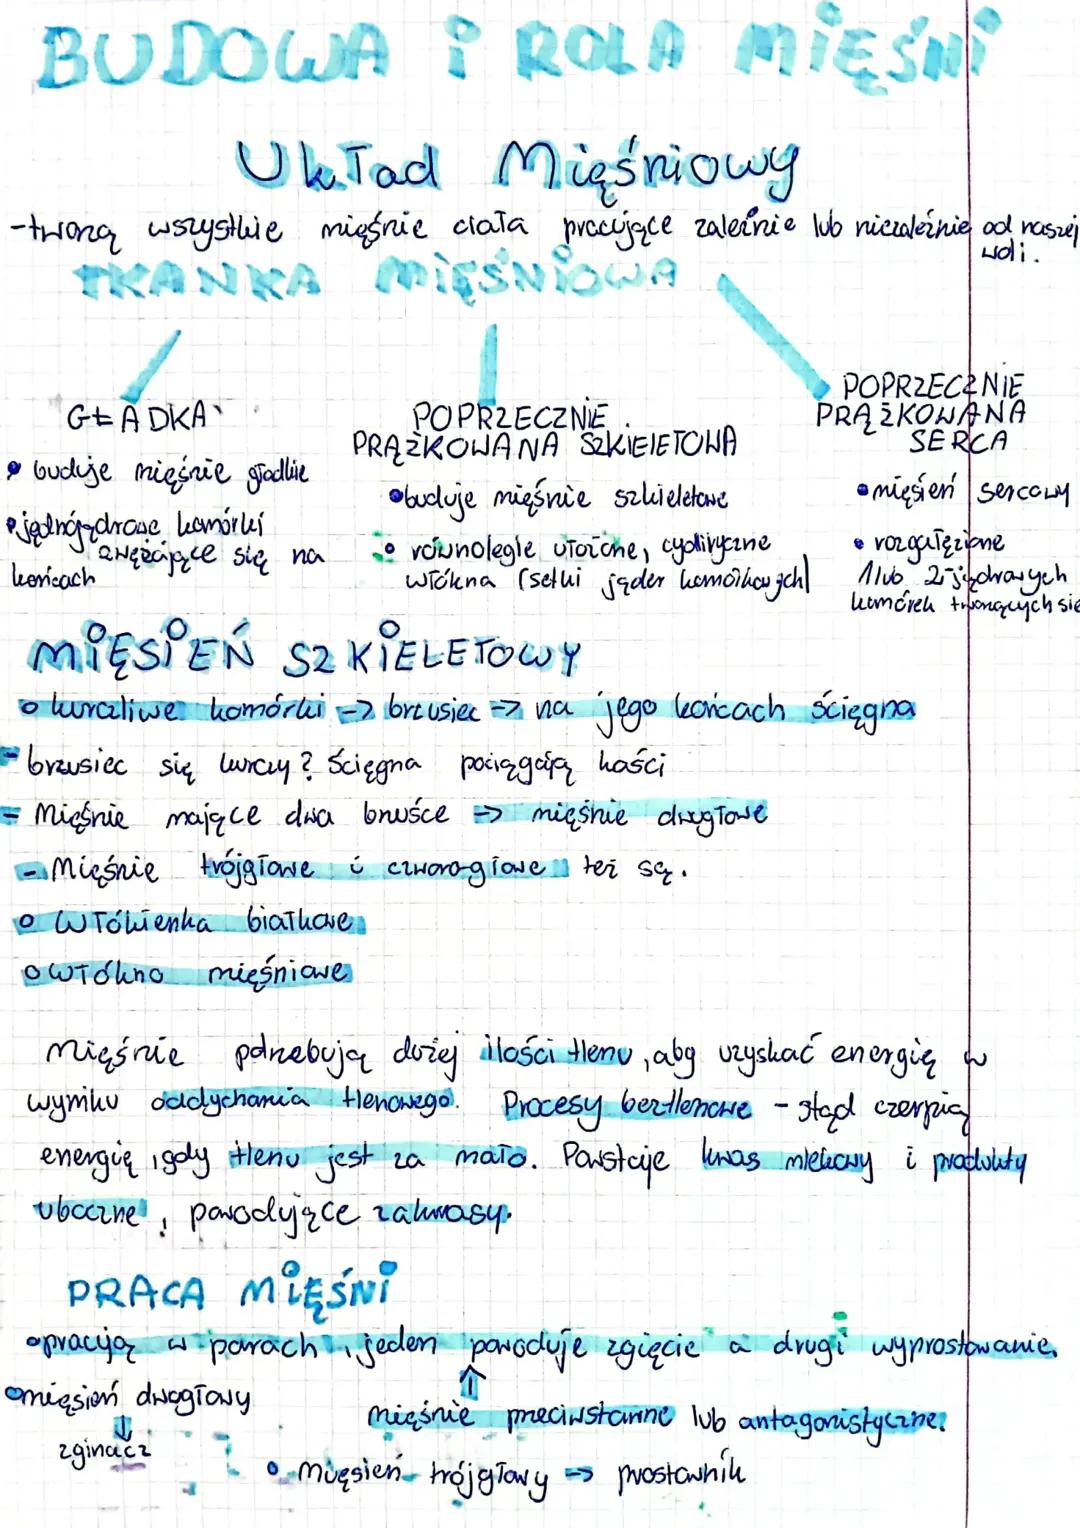 BUDOWA i ROLA MIĘŚNI
Układ Mięśniowy
-tworzą wszystkie mięśnie ciała pracujące zależnie lub niezależnie od naszej
woli.
TKANKA MIĘŚNIOWA
GŁADKA
• buduje mięśnie gładkie
• jednojądrowe komórki
zwężające się na
końcach
POPRZECZNIE
PRĄŻKOWANA SZKIELETOWA
• buduje mięśnie szkieletowe
• równolegle ułożone, cylidryczne
włókna (setki jąder komórkowych)
POPRZECZNIE
PRĄŻKOWANA
SERCA
• mięsień sercowy
• rozgałęzione
1 lub 2-jądrowych
komórek tworzących się
MIĘSIEŃ SZKIELETOWY
o kurczliwe komórki -> brzusiec -> na jego końcach ścięgna
- brzusiec się kurczy? Ścięgna pociągają kości
- Mięśnie mające dwa brzuśce -> mięśnie dwugłowe
- Mięśnie trójgłowe i czworogłowe też są.
o Włókienka białkowe
o włókno mięśniowe
Mięśnie potrzebują dużej ilości tlenu, aby uzyskać energię w
wyniku oddychania tlenowego. Procesy beztlenowe - stąd czerpią
energię, gdy tlenu jest za mało. Powstaje kwas mlekowy i produkty
uboczne, powodujące zakwasy.
PRACA MIĘŚNI
• pracują w parach, jeden powoduje zgięcie a drugi wyprostowanie.
• mięsień dwugłowy
mięśnie przeciwstawne lub antagonistyczne.
zginacz
• Mięsień trójgłowy -> prostownik